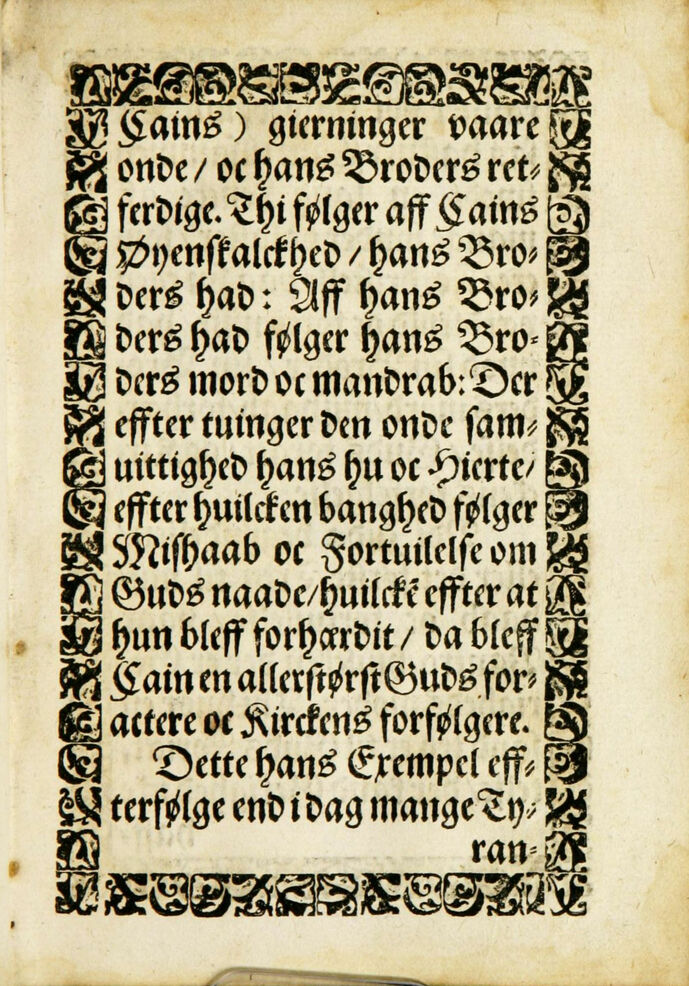 Cains) gierninger vaare
onde/ oc hans Broders ret⸗
ferdige. Thi følger aff Cains
Øyenskalckhed / hans Bro⸗
ders had: Aff hans Bro⸗
ders had følger hans Bro⸗
ders mord oc mandrab: Der
effter tuinger den onde sam⸗
uittighed hans hu oc Hierte/
effter huilcken banghed følger
Mishaab oc Fortuilelse om
Guds naade/huilckē effter at
hun bleff forhærdit/ da bleff
Cain en allerstørst Guds for⸗
actere oc Kirckens forfølgere.
Dette hans Exempel eff⸗
terfølge end i dag mange Ty⸗
ran⸗